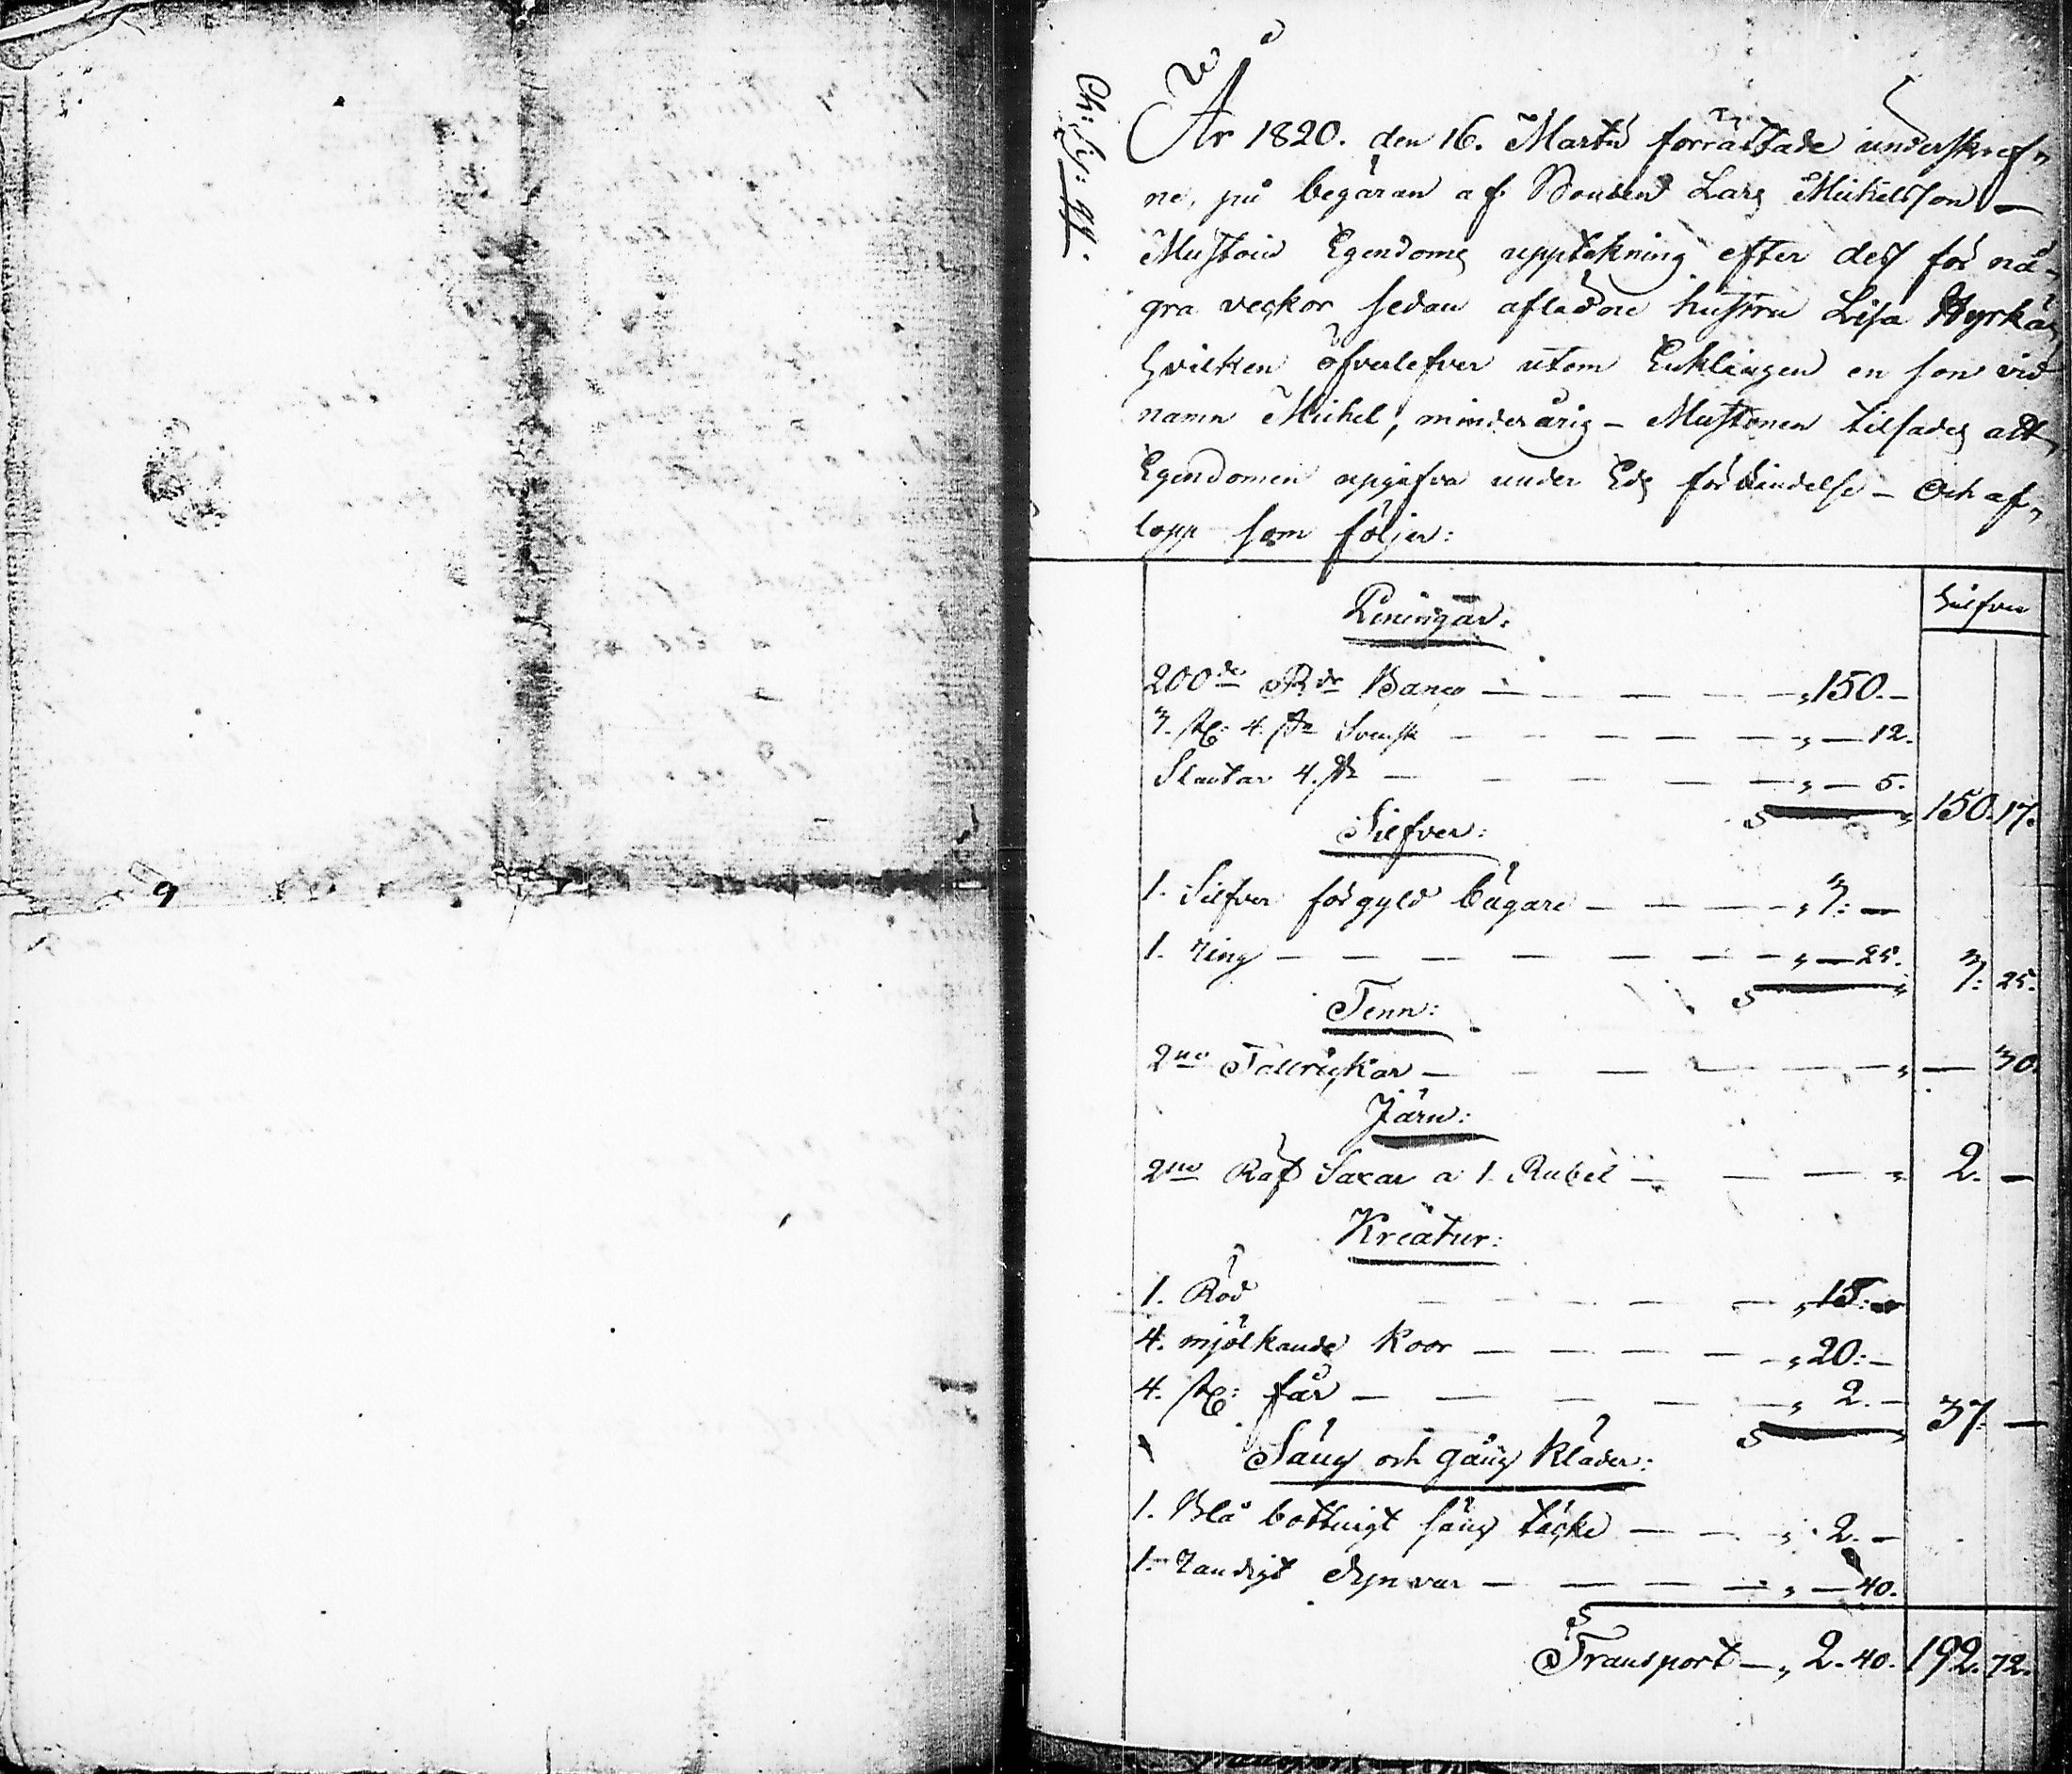 År 1820. den 16. Martii förrättade underskref„
ne, på begäran af Bonden Lars Michelsson —
Mustoin Egendoms upptekning efter dess för nå-
gra veckor sedan aflidne hustru Lisa Hyrkäs
hvilken öfverlefver utom Enklingen en son vid
namn Michel, minderårig — Mustonen tilsades att
Egendomen upgifva under Eds förbindelse — Och af„
lopp som följer:
Silfver
Peningar:
200de Rdr Banco — — — — „150. —
3. st: 4. sk Svensk — — — — „ — 12.
Slantar 4. sk — — — — „ — 5.
S 150. 17.
Silfver:
1. Silfver förgyld bägare — — — „ 3: —
1. ring — — — — — — „ — 25.
S 3: 25.
Tenn:
2ne Tallrickar — — — — — „ — 30.
Järn:
2ne Räf Saxar a 1. Rubel — — — „ 2. —
Kreatur:
1. Röd — — — — „ 15: —
4. mjölkande Koor — — — — „ 20: —
4. st: får — — — — „ 2. —
S 37. —
Säng och gång Kläder:
1. Blå bottnigt säng täcke — — „ 2. —
1. randigt dyn var — — — — „ — 40.
S
Transport — „ 2. 40. 192. 72.